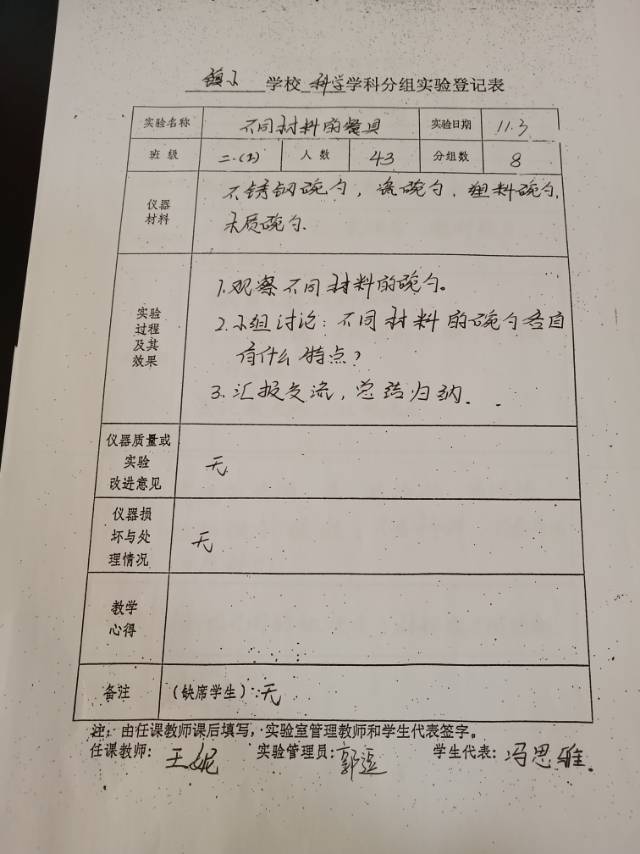 镇小 学校 科学 学科分组实验登记表
实验名称 不同材料的餐具 实验日期 11.3
班 级 二.(2) 人 数 43 分组数 8
仪器材料
不锈钢碗勺，瓷碗勺，塑料碗勺，
木质碗勺.
实验过程及其效果
1.观察不同材料的碗勺。
2.小组讨论：不同材料的碗勺各自
有什么特点？
3.汇报交流，总结归纳.
仪器质量或实验改进意见 无
仪器损坏与处理情况 无
教学心得
备注 （缺席学生）：无
注：由任课教师课后填写，实验室管理教师和学生代表签字。
任课教师：王妮 实验管理员：郭 学生代表：冯思雅